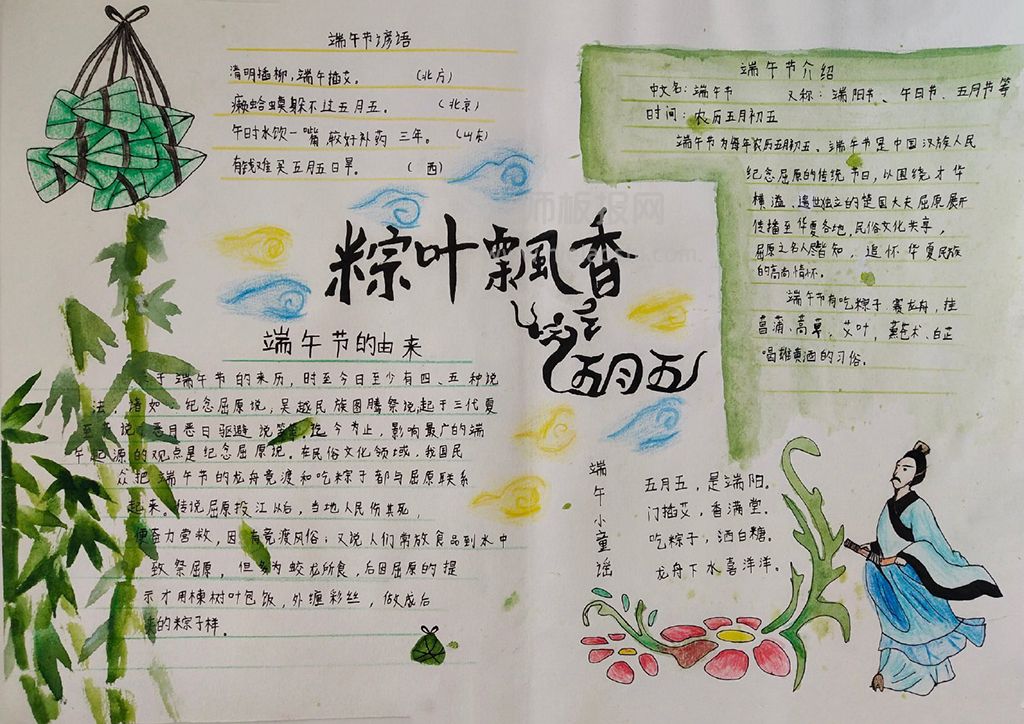 端午节谚语
清明插柳，端午插艾。（北方）
癞蛤蟆躲不过五月五。（北京）
午时水饮一嘴，较好补药三年。（山东）
有钱难买五月五日旱。（西）
粽叶飘香
五月五
端午节的由来
于端午节的来历，时至今日至少有四、五种说
法，诸如：纪念屈原说，吴越民族图腾祭说，起于三代夏
至 说，恶月恶日驱避说等等。迄今为止，影响最广的端
午起源的观点是纪念屈原说。在民俗文化领域，我国民
众把端午节的龙舟竞渡和吃粽子都与屈原联系
起来。传说屈原投江以后，当地人民伤其死，
便奋力营救，因有竞渡风俗；又说人们常放食品到水中
致祭屈原，但多为蛟龙所食，后因屈原的提
示才用楝树叶包饭，外缠彩丝，做成后
来的粽子样。
端午节介绍
中文名：端午节 又称：端阳节、午日节、五月节等
时间：农历五月初五
端午节为每年农历五月初五、端午节是中国汉族人民
纪念屈原的传统节日，以围绕才华
横溢、遗世独立的楚国大夫屈原展开
传播至华夏各地，民俗文化共享，
屈原之名人尽皆知，追怀华夏民族
的高尚情怀。
端午节有吃粽子 赛龙舟，挂
菖蒲、蒿草，艾叶，薰苍术、白芷
喝雄黄酒的习俗。
端午小童谣
五月五，是端阳。
门插艾，香满堂。
吃粽子，洒白糖。
龙舟下水喜洋洋。